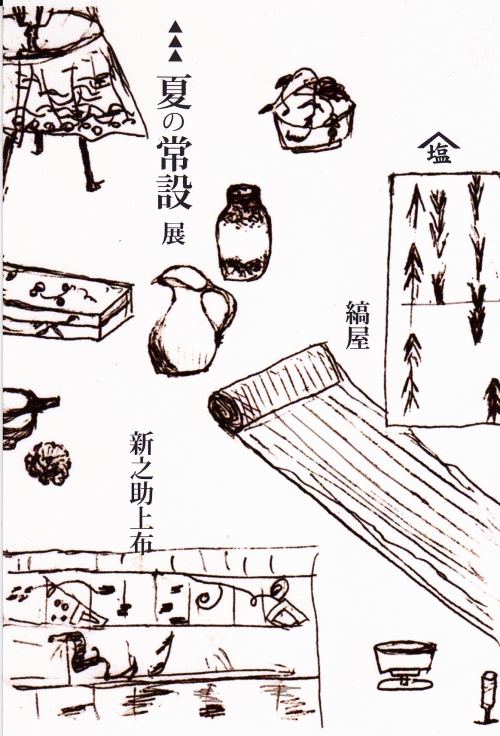 夏の常設展
塩
縞屋
新之助上布